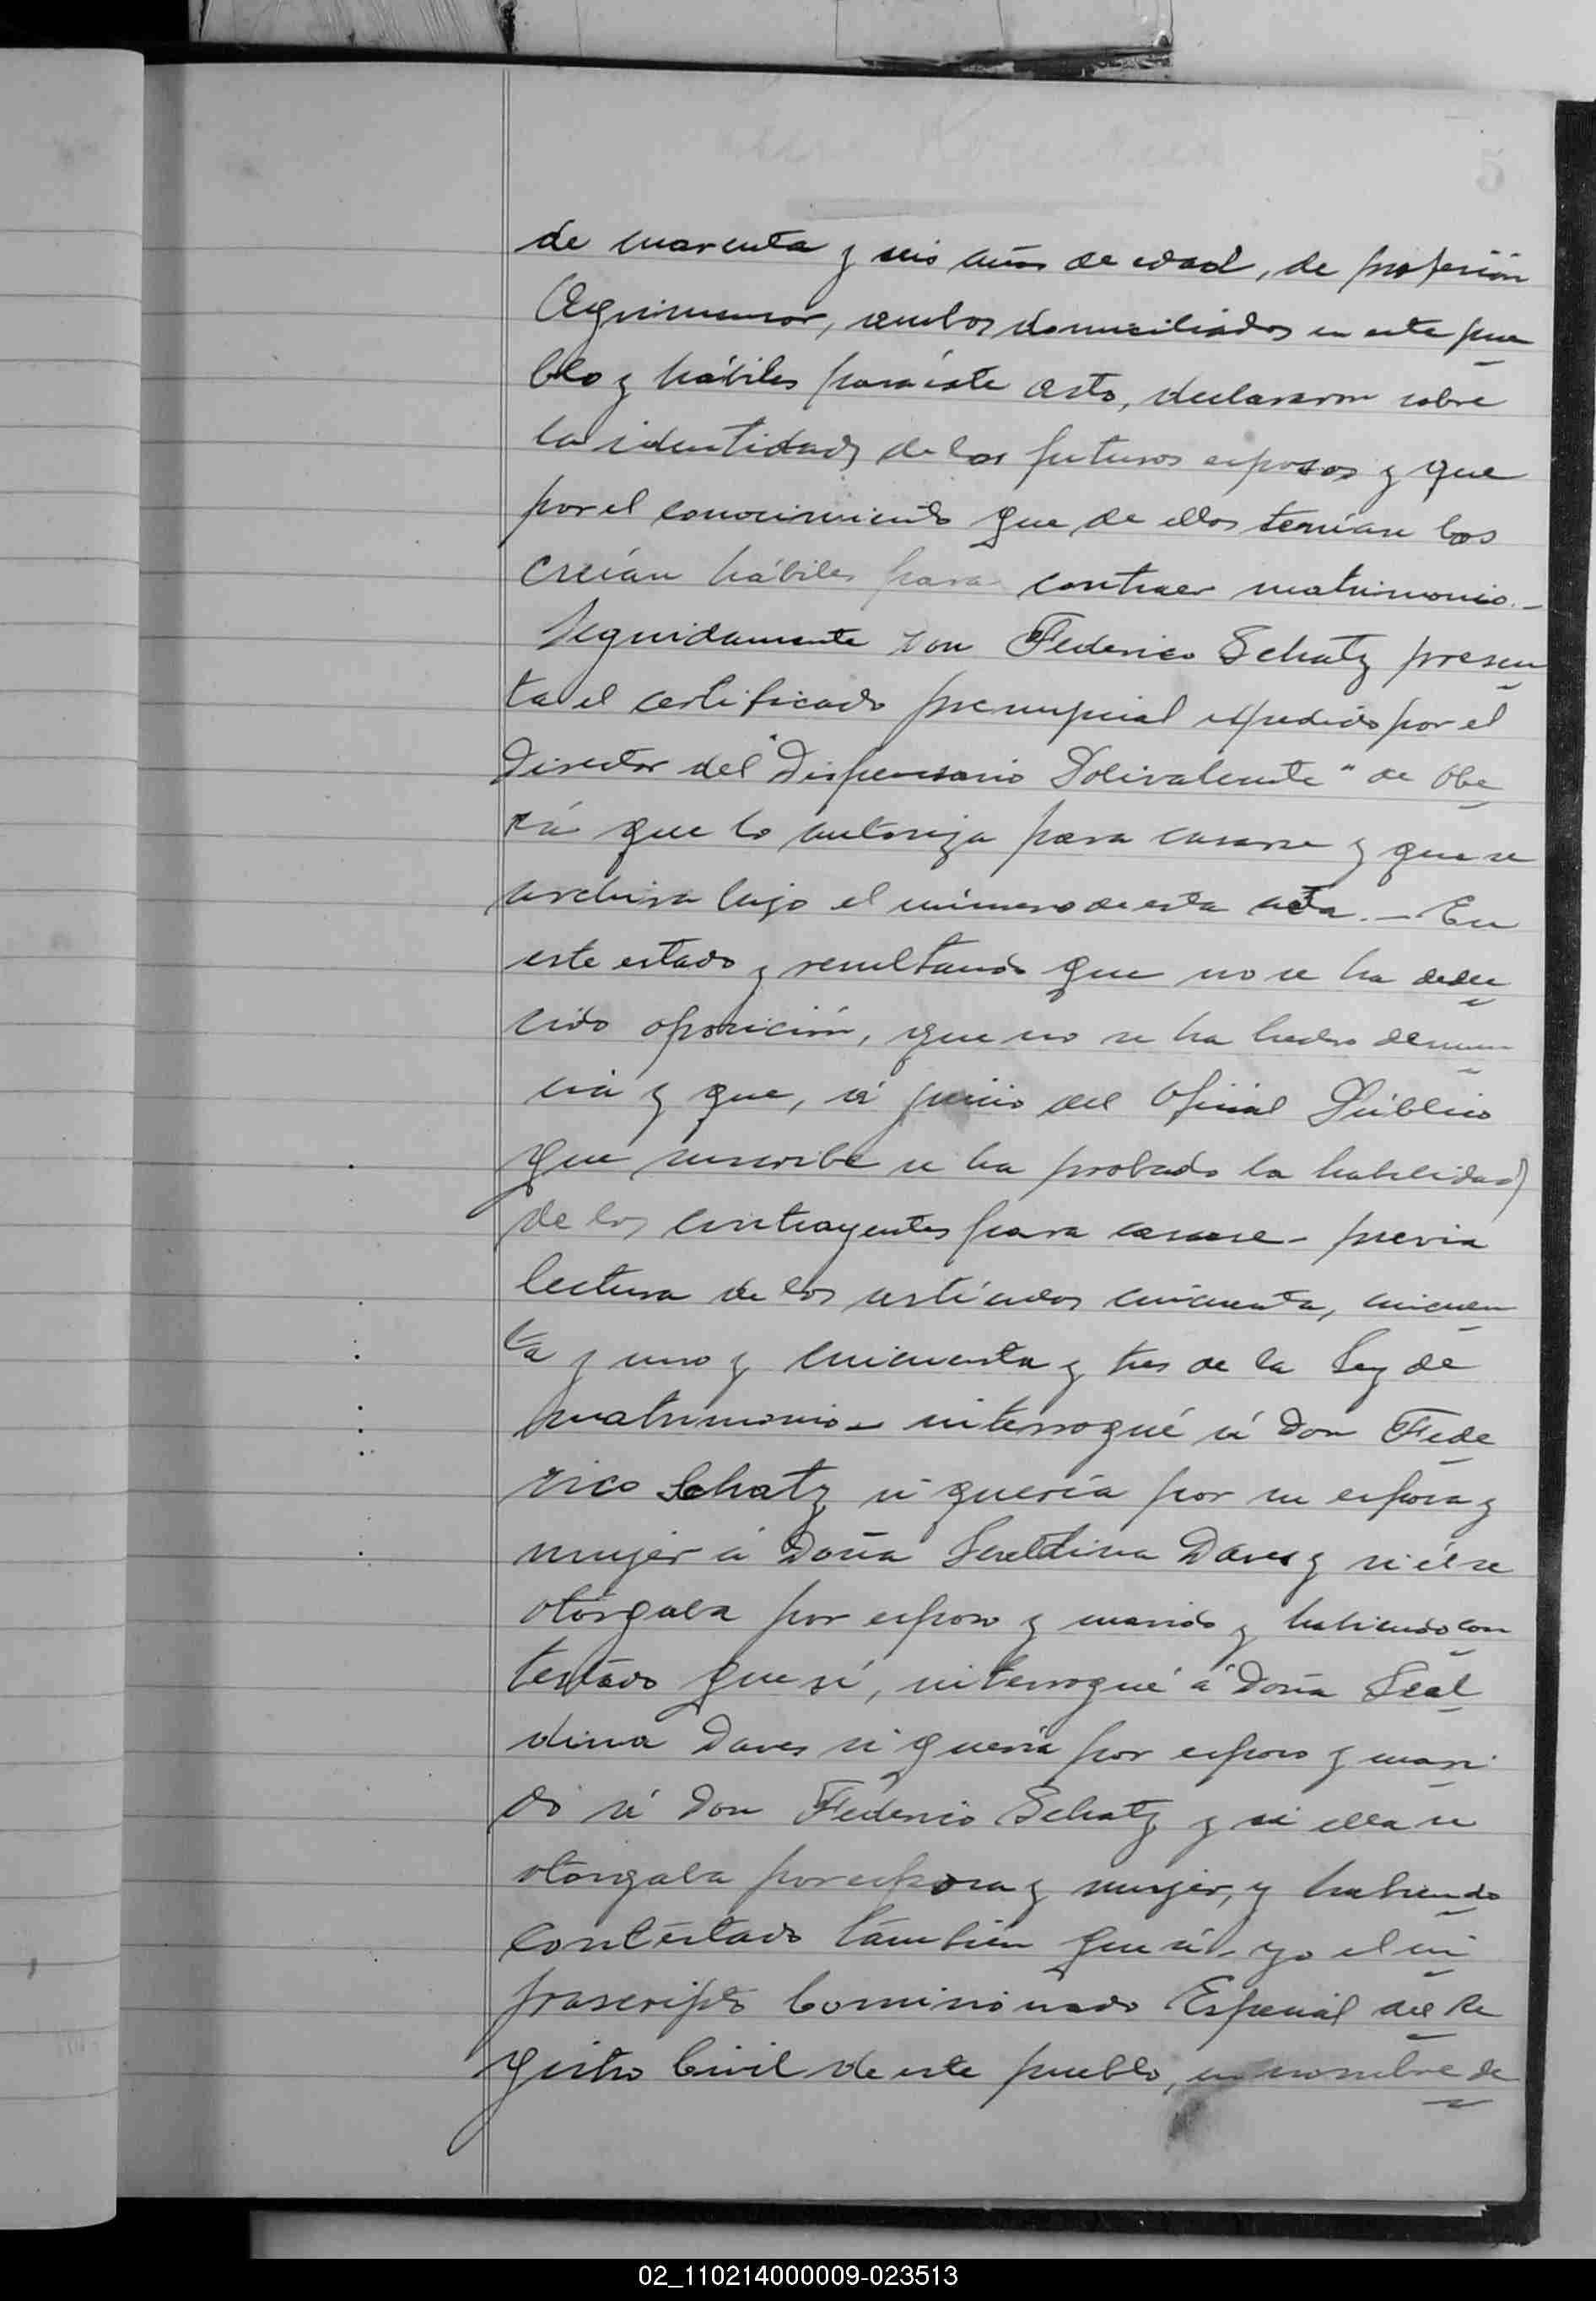 5
de cuarenta y seis años de edad, de profesión
Agrimensor, ambos domiciliados en este pue
blo y hábiles para éste acto, declararon sobre
la identidad de los futuros esposos y que
por el conocimiento que de ellos tenían los
creían hábiles para contraer matrimonio.-
Seguidamente Don Federico Schatz presen
ta el certificado prenupcial expedido por el
Director del "Dispensario Polivalente" de Obe
rá que lo autoriza para casarse y que se
archiva bajo el número de esta acta.- En
este estado y resultando que no se ha dedu
cido oposición, que no se ha hecho denun
cia y que, á juicio del Oficial Público
que suscribe se ha probado la habilidad
de los contrayentes para casarse- previa
lectura de los artículos cincuenta, cincuen
ta y uno y cincuenta y tres de la Ley de
matrimonio- interrogué á Don Fede
rico Schatz si quería por su esposa y
mujer á Doña Daves y si él se
otorgaba por esposo y marido y habiendo con
testado que sí, interrogué á Doña Seal
dina Daves si quería por esposo y mari
do á Don Federico Schatz y si ella se
otorgaba por esposa y mujer, y habiendo
contestado también que sí- yo el in
frascripto Comisionado Especial del Re
gistro Civil de este pueblo, en nombre de
02_110214000009-023513